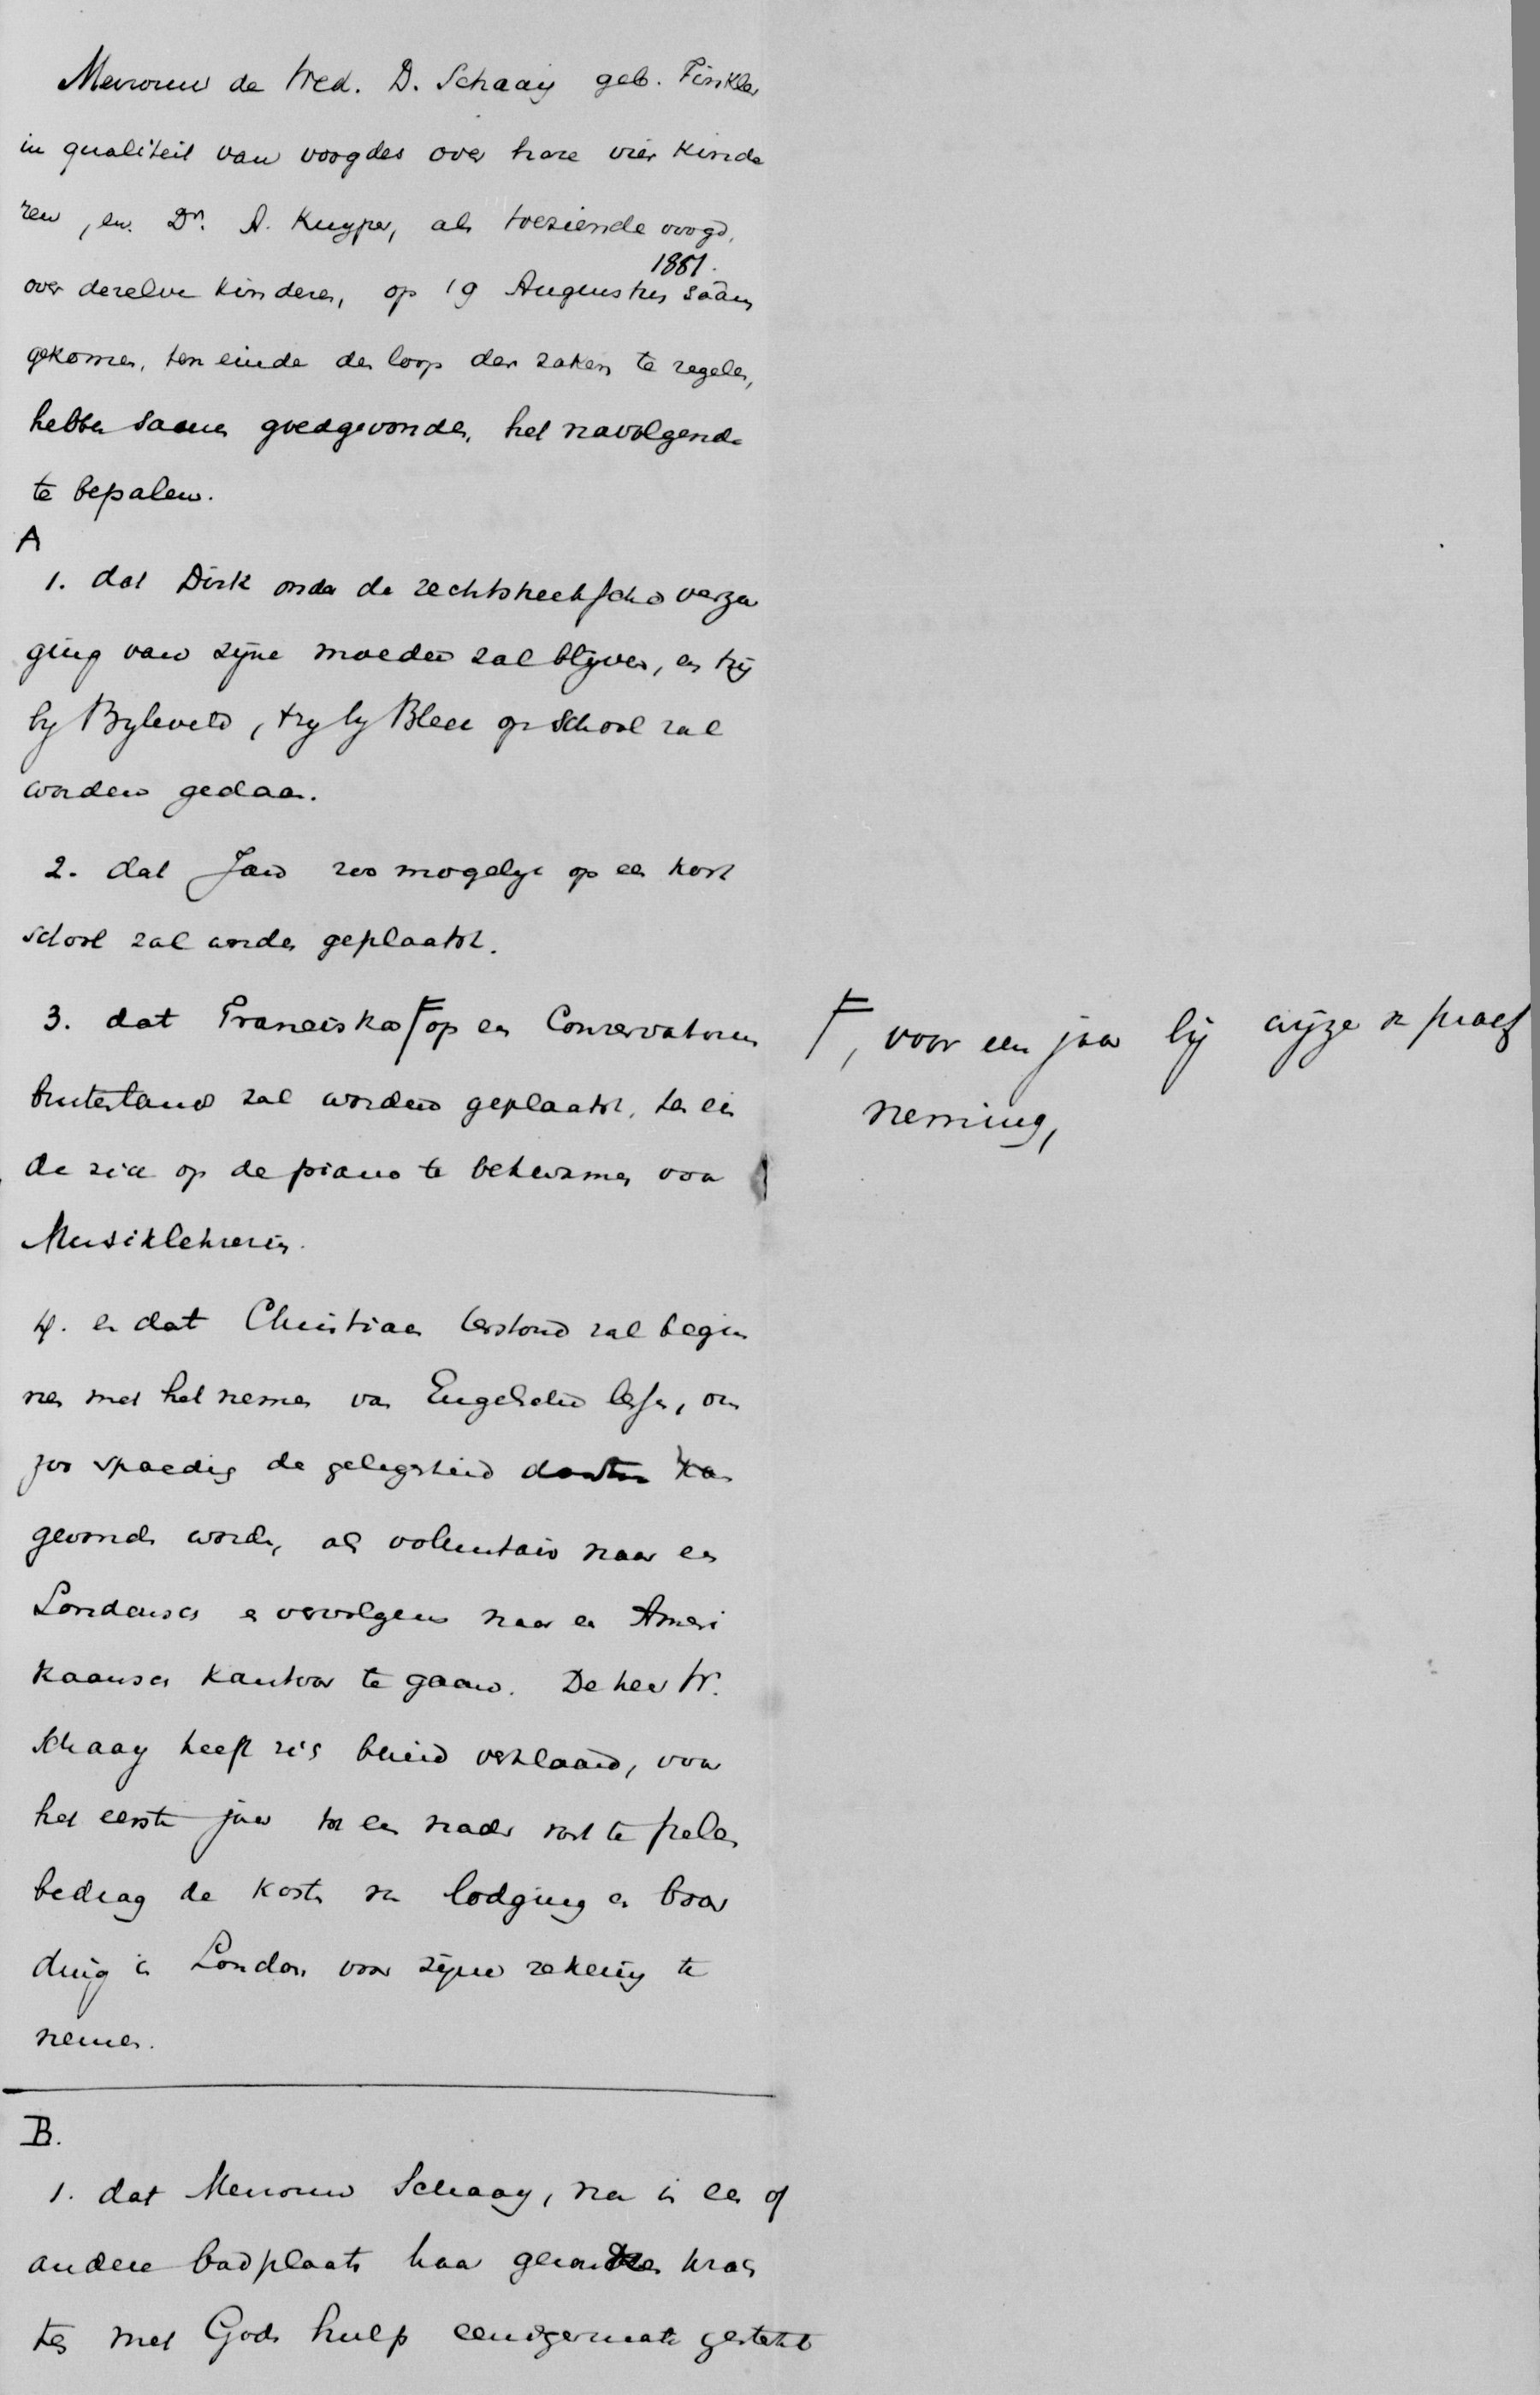 Mevrouw de Wed. D. Schaay geb. Finkler
in qualiteit van voogdes over hare vier kinde
ren, en Dr. A. Kuyper, als toeziende voogd,
1881.
over dezelve kinderen, op 19 Augustus saam
gekomen, ten einde den loop der zaken te regelen,
hebben samen goedgevonden, het navolgende
te bepalen.
A
1. dat Dirk onder de rechtstreeksche verzor
ging van zijne moeder zal blijven, en hij
by Byleveld, hy by Blee op school zal
worden gedaan.
2. dat Jan zoo mogelijk op een kost
school zal worden geplaatst.
3. dat Franciska F op een Conservatorium
buitenland zal worden geplaatst, ten ein
de zich op de piano te bekwamen voor
Musiklehrerin.
F, voor een jaar bij wijze van proef
neming,
4. en dat Christiaan terstond zal begin
nen met het nemen van Engelsche lessen, om
zoo spoedig de gelegenheid kan
gevonden worden, als volontair naar een
Londensch en vervolgens naar een Ameri
kaansch kantoor te gaan. De heer W.
Schaay heeft zich bereid verklaard, voor
het eerste jaar tot een nader vast te stellen
bedrag de kosten van lodging en boar
ding in London voor zijne rekening te
nemen.
B.
1. dat Mevrouw Schaay, na in een of
andere badplaats haar geschokte krach
ten met Gods hulp eenigermate gesterkt